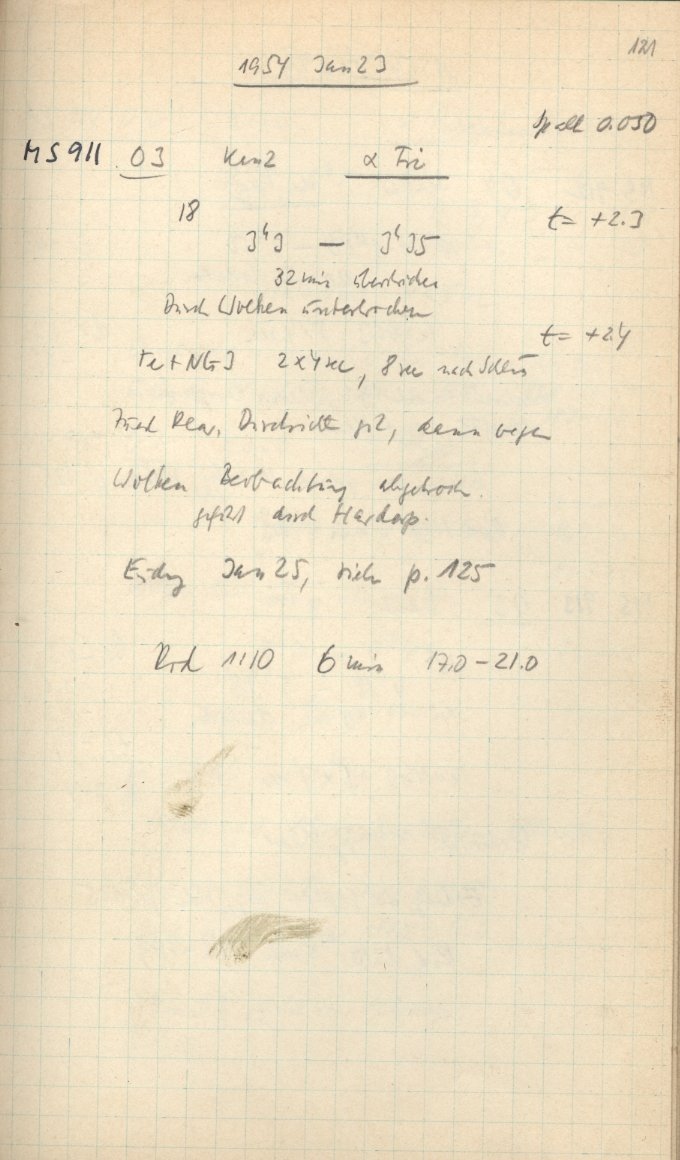 121
1954 Jan 23
Spalt 0.050
MS 911 O3 Kam 2 α Tri
18 t = +2.3
3ʰ3 — 3ʰ35
32 min
Durch Wolken unterbrochen
t = +2.4
2 x 4 sec, 8 sec nach Schluß
Durchsicht gut, dann wegen
Wolken Beobachtung abgebroch.
durch Hardorp.
Jan 25, siehe p. 125
Rod 1:10 6 min 17.0 – 21.0